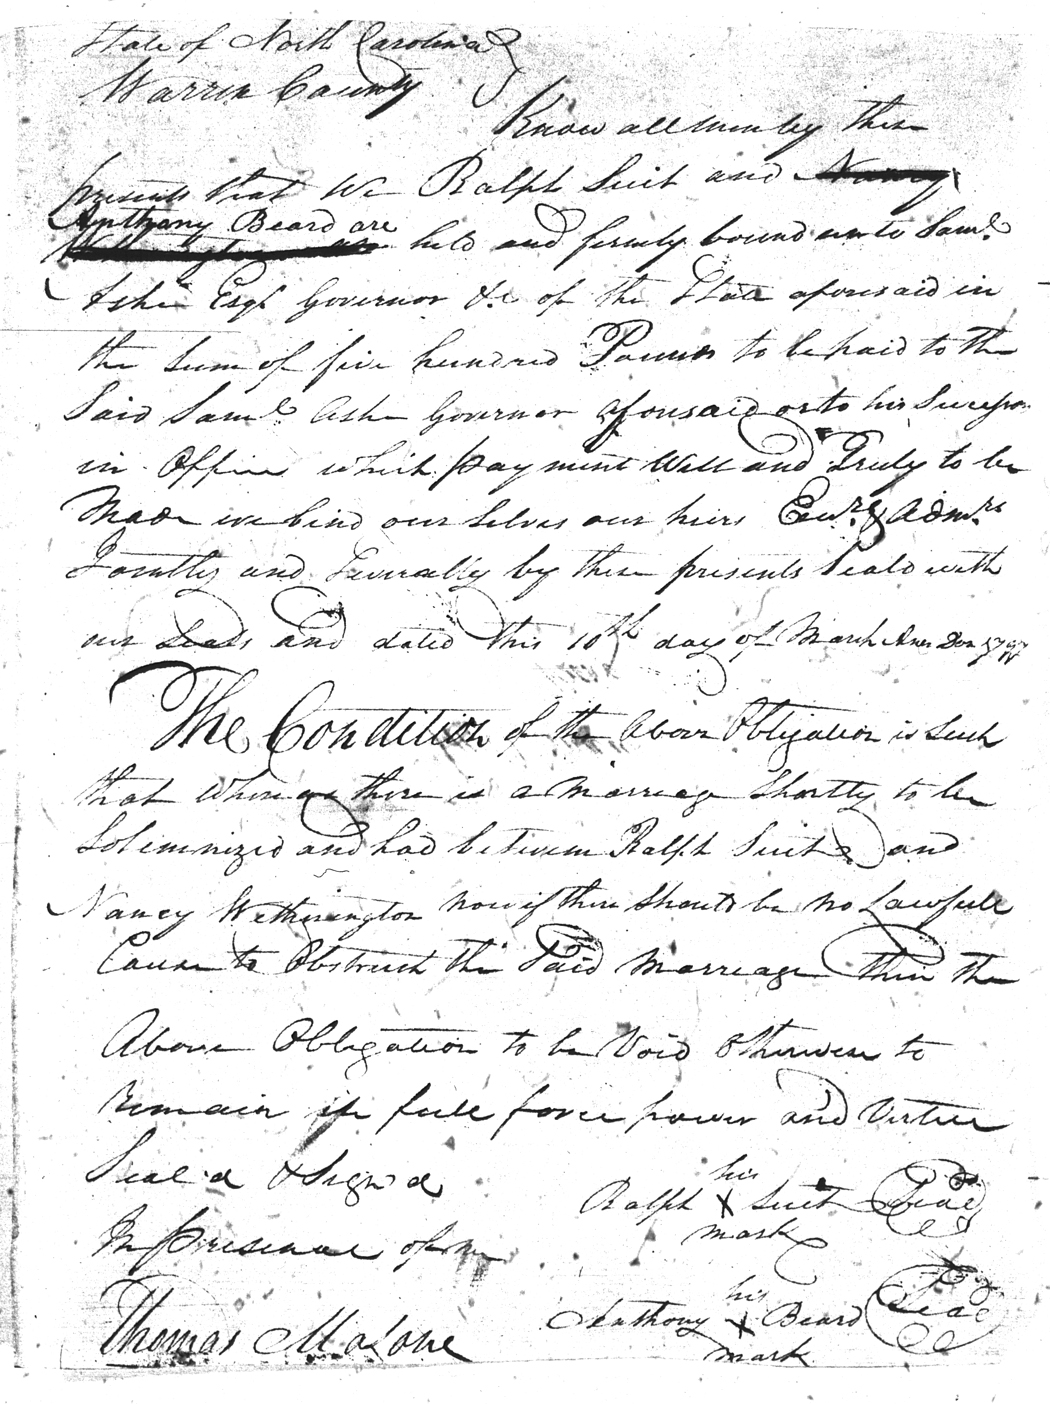 State of North Carolina
Warren County
Know all men by these
presents that We Ralph Suit and Nancy
Anthony Beard are
held and firmly bound unto Saml.
Ashe Esqr. Governor &c of the State aforesaid in
the Sum of five hundred Pounds to be paid to the
Said Saml. Ashe Governor aforesaid or to his Successors
in Office which payment Well and Truly to be
Made we bind our Selves our heirs Exrs. & Admrs
Jointly and Severally by these presents Seald with
our Seals and dated this 10th day of March Anno Dom 1797
The Condition of the Above Obligation is Such
that Whereas there is a Marreage Shortly to be
Solemnized and had between Ralph Suit and
Nancy Wetherington now if there should be no Lawfull
Cause to Obstruct the Said Marreage then the
Above Obligation to be Void Otherwise to
Remain in full force power and Virtue
Seal'd & Sign'd
In presence of
his
Ralph X Suit Seal
mark
his
Anthony X Beard Seal
mark
Thomas Malone